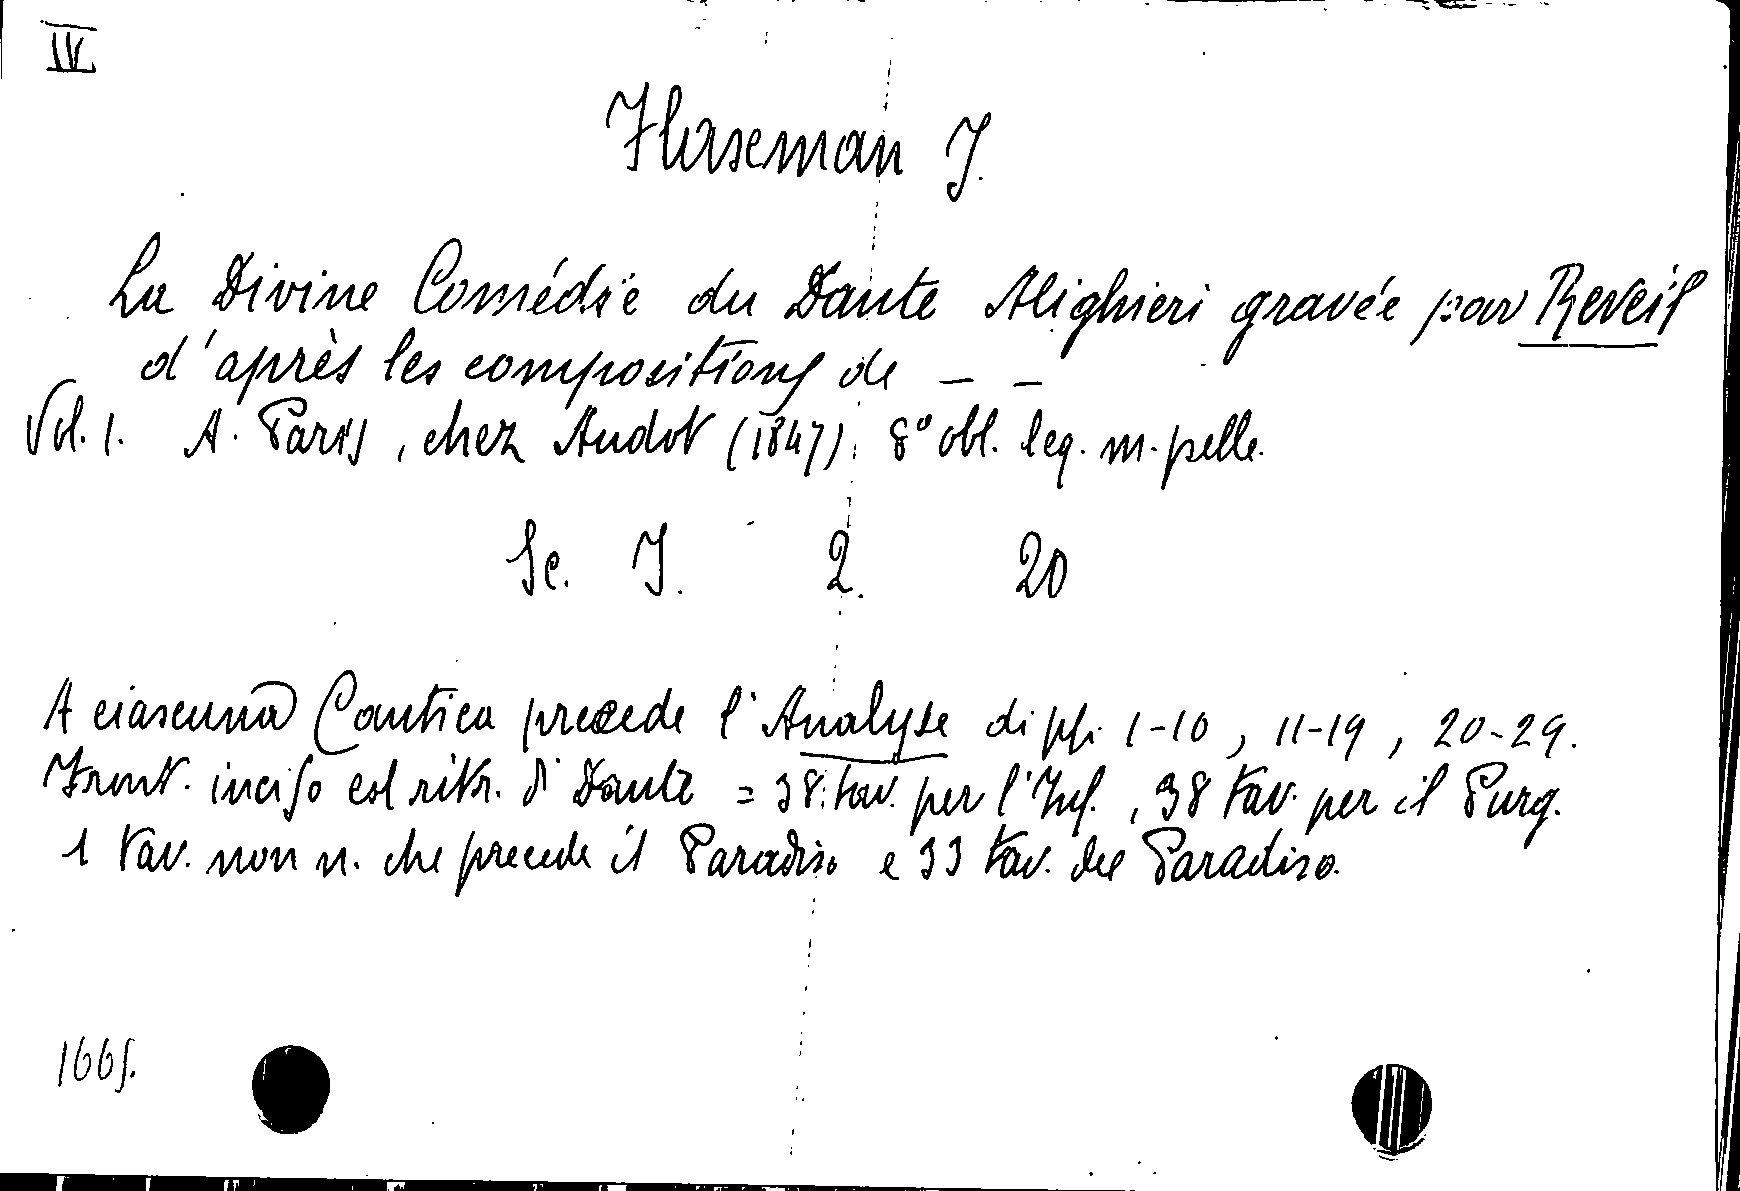 IV
Flaxeman J.
La Divine Comédie du Dante Alighieri gravée par Reveil
d'après les compositions de _ _
Vol. 1. A. Paris, chez Audot (1847). 8° obl. leg. m. pelle.
Sc. I. 2. 20
A ciascuna Cantica precede l'Analyse di pp. 1-10, 11-19, 20-29.
Front. inciso col ritr. di Dante = 38. tav. per l'Inf., 38 tav. per il Purg.
1 tav. non n. che precede il Paradiso e 33 tav. del Paradiso.